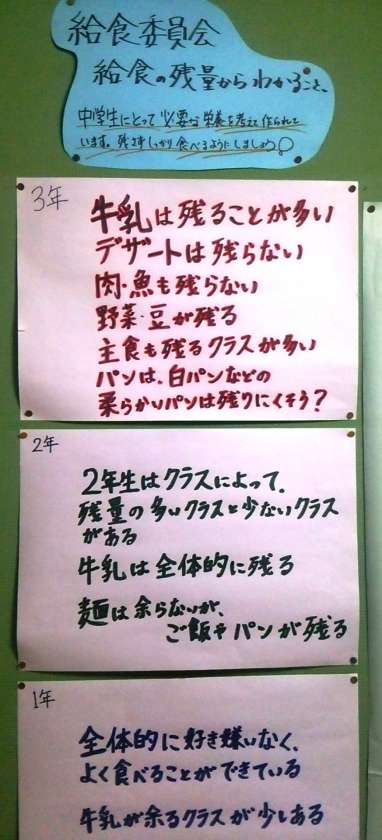 給食委員会
給食の残量からわかること、
中学生にとって必要な栄養を考えて作られて
います。残さずしっかり食べるようにしましょう
3年
牛乳は残ることが多い
デザートは残らない
肉・魚も残らない
野菜・豆が残る
主食も残るクラスが多い
パンは、白パンなどの
柔らかいパンは残りにくそう?
2年
2年生はクラスによって、
残量の多いクラスと少ないクラス
がある
牛乳は全体的に残る
麺は余らないが、
ご飯やパンが残る
1年
全体的に好き嫌いなく、
よく食べることができている
牛乳が余るクラスが少しある